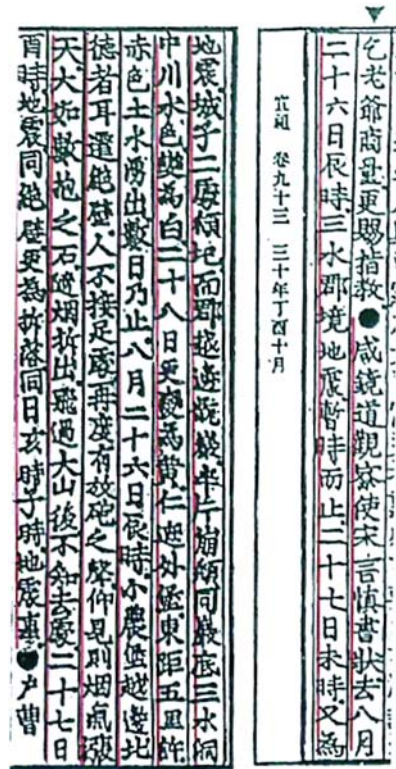 乞老爺商量更賜指教●咸鏡道觀察使宋言愼書狀去八月
二十六日辰時三水郡境地震暫時而止二十七日未時又爲
宣祖 卷九十三 三十年丁酉十月
地震城子二處頹圮而郡越邊甑巖半片崩頹同巖底三水洞
中川水色變爲白二十八日更變爲黃仁遮外堡東距五里許
赤色土水湧出數日乃止八月二十六日辰時小農堡越邊北
德者耳遷絶壁人不接足處再度有放砲之聲仰見則烟氣漲
天大如數抱之石隨烟拆出飛過大山後不知去處二十七日
酉時地震同絶壁更爲拆落同日亥時子時地震事●戶曹